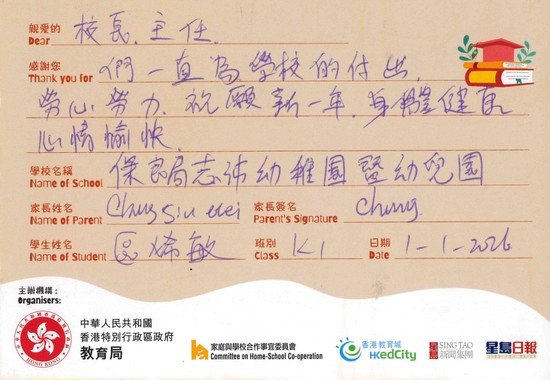 親愛的 校長、主任
Dear
感謝您 們一直為學校的付出,
Thank you for
勞心勞力,祝願新一年,身體健康
心情愉快.
學校名稱 保良局志沛幼稚園暨幼兒園
Name of School
家長姓名 Chung Siu 家長簽名 Chung
Name of Parent Parent's Signature
學生姓名 區 敏 班別 K1 日期 1-1-2026
Name of Student Class Date
主辦機構:
Organisers:
中華人民共和國
香港特別行政區政府
教育局
HONG KONG
家庭與學校合作事宜委員會
Committee on Home-School Co-operation
香港教育城
HKedCity
星島 SING TAO
新聞集團
星島日報